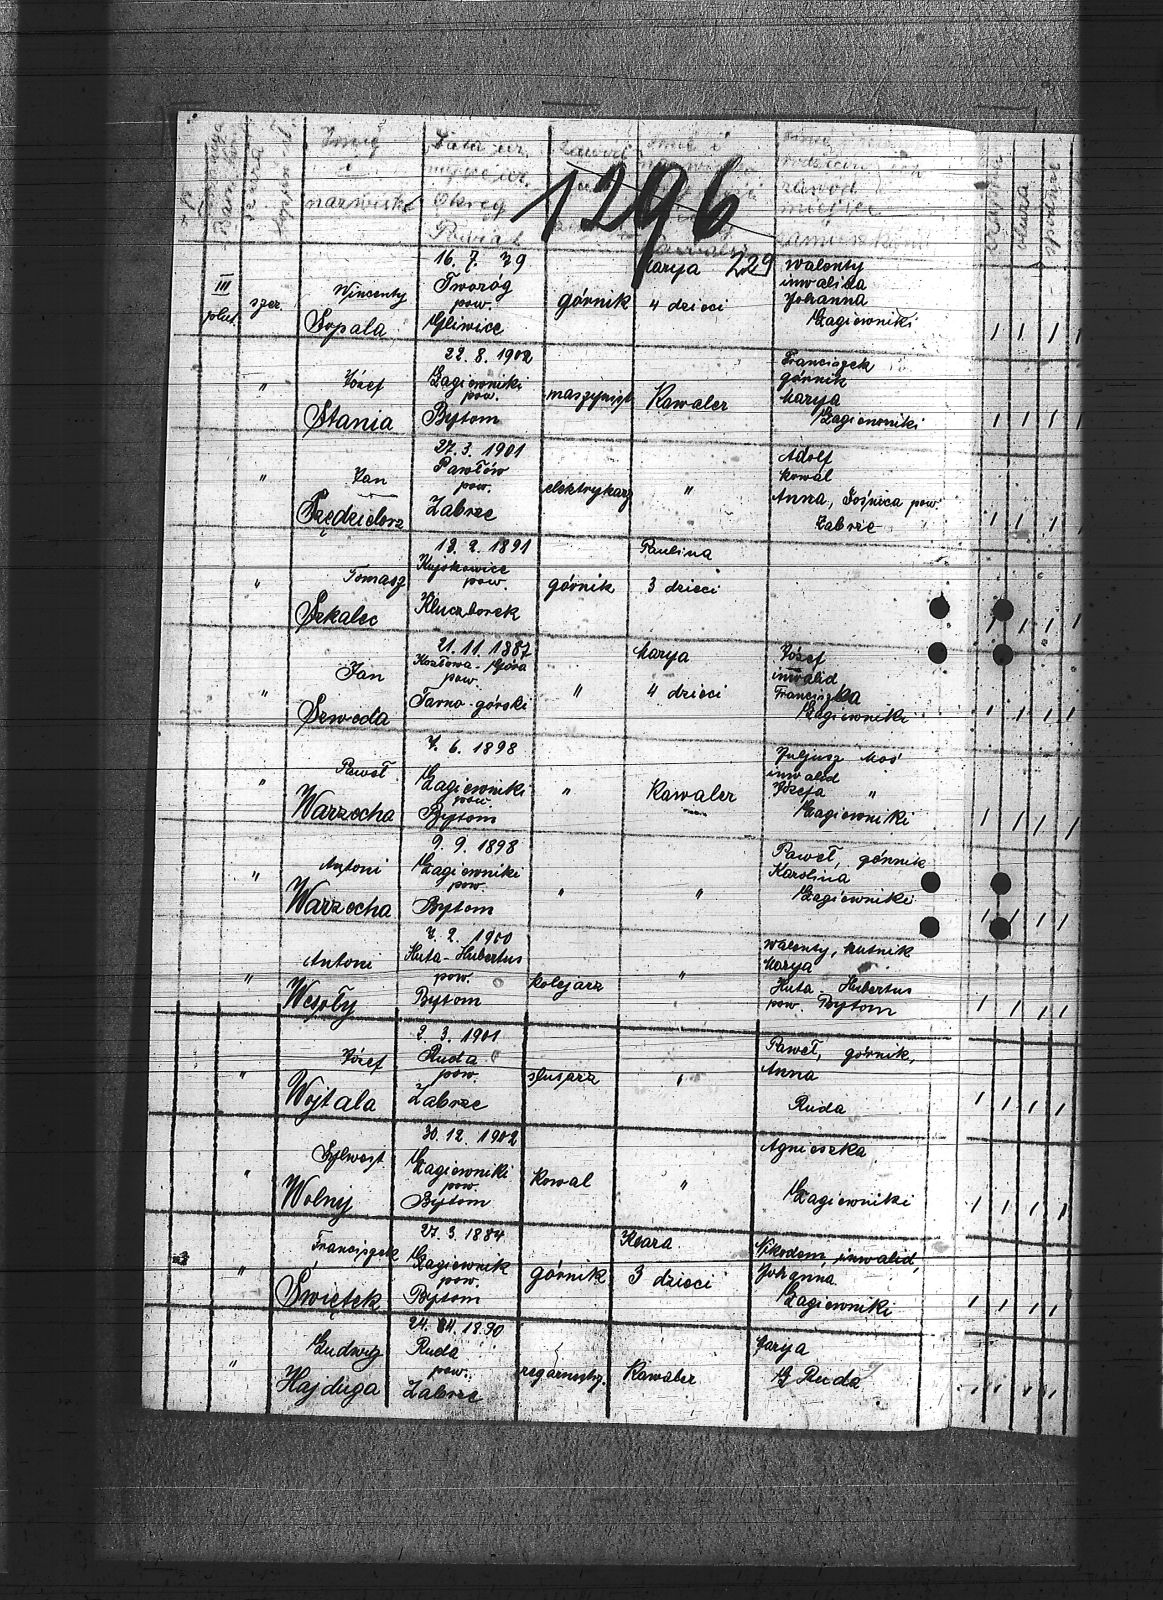 Imię
i
nazwisko
Data ur.
miejsce ur.
Okręg
Powiat
Zawód
Imię i
zawód i
miejsce
zamieszkania
szarża
1296
229
III
plut.
szer.
Wincenty
Sopala
16. 7. 79
Tworóg
pow.
Gliwice
górnik
Marya
4 dzieci
Walenty
inwalida
Johanna
Łagiewniki
"
Józef
Stania
22. 8. 1902
Łagiewniki
pow.
Bytom
maszynist
Kawaler
Franciszek
górnik
Marya
Łagiewniki
"
Jan
Szędzielorz
27. 3. 1901
Pawłów
pow.
Zabrze
elektrykarz
"
Adolf
kowal
Anna, Sośnica pow.
Zabrze
"
Tomasz
Szkalec
13. 2. 1891
pow.
Kluczborek
górnik
Paulina
3 dzieci
"
Jan
Szweda
21. 11. 1887
Kozłowa-Góra
pow.
Tarno-górski
"
Marya
4 dzieci
Józef
inwalid
Franciszka
Łagiewniki
"
Paweł
Warzecha
7. 6. 1898
Łagiewniki
pow.
Bytom
"
Kawaler
Juljusz Moś
inwalid
Józefa "
Łagiewniki
"
Antoni
Warzecha
9. 9. 1898
Łagiewniki
pow.
Bytom
"
"
Paweł, górnik
Karolina
Łagiewniki
"
Antoni
Wesoły
7. 2. 1900
Huta-Hubertus
pow.
Bytom
kolejarz
"
Walenty, hutnik
Marya
Huta-Hubertus
pow. Bytom
"
Józef
Wojtala
2. 3. 1901
Ruda
pow.
Zabrze
slusarz
"
Paweł, górnik,
Anna
Ruda
"
Sylwest
Wolny
30. 12. 1902
Łagiewniki
pow.
Bytom
Kowal
"
Agnieszka
Łagiewniki
"
Franciszek
Świętek
27. 3. 1884
Łagiewnik
pow.
Bytom
górnik
Klara
3 dzieci
Nikodem, inwalid,
Johanna
Łagiewniki
"
Ludwig
Hajduga
24. 04. 1890
Ruda
pow.
Zabrze
Kawaler
Marya
Ruda